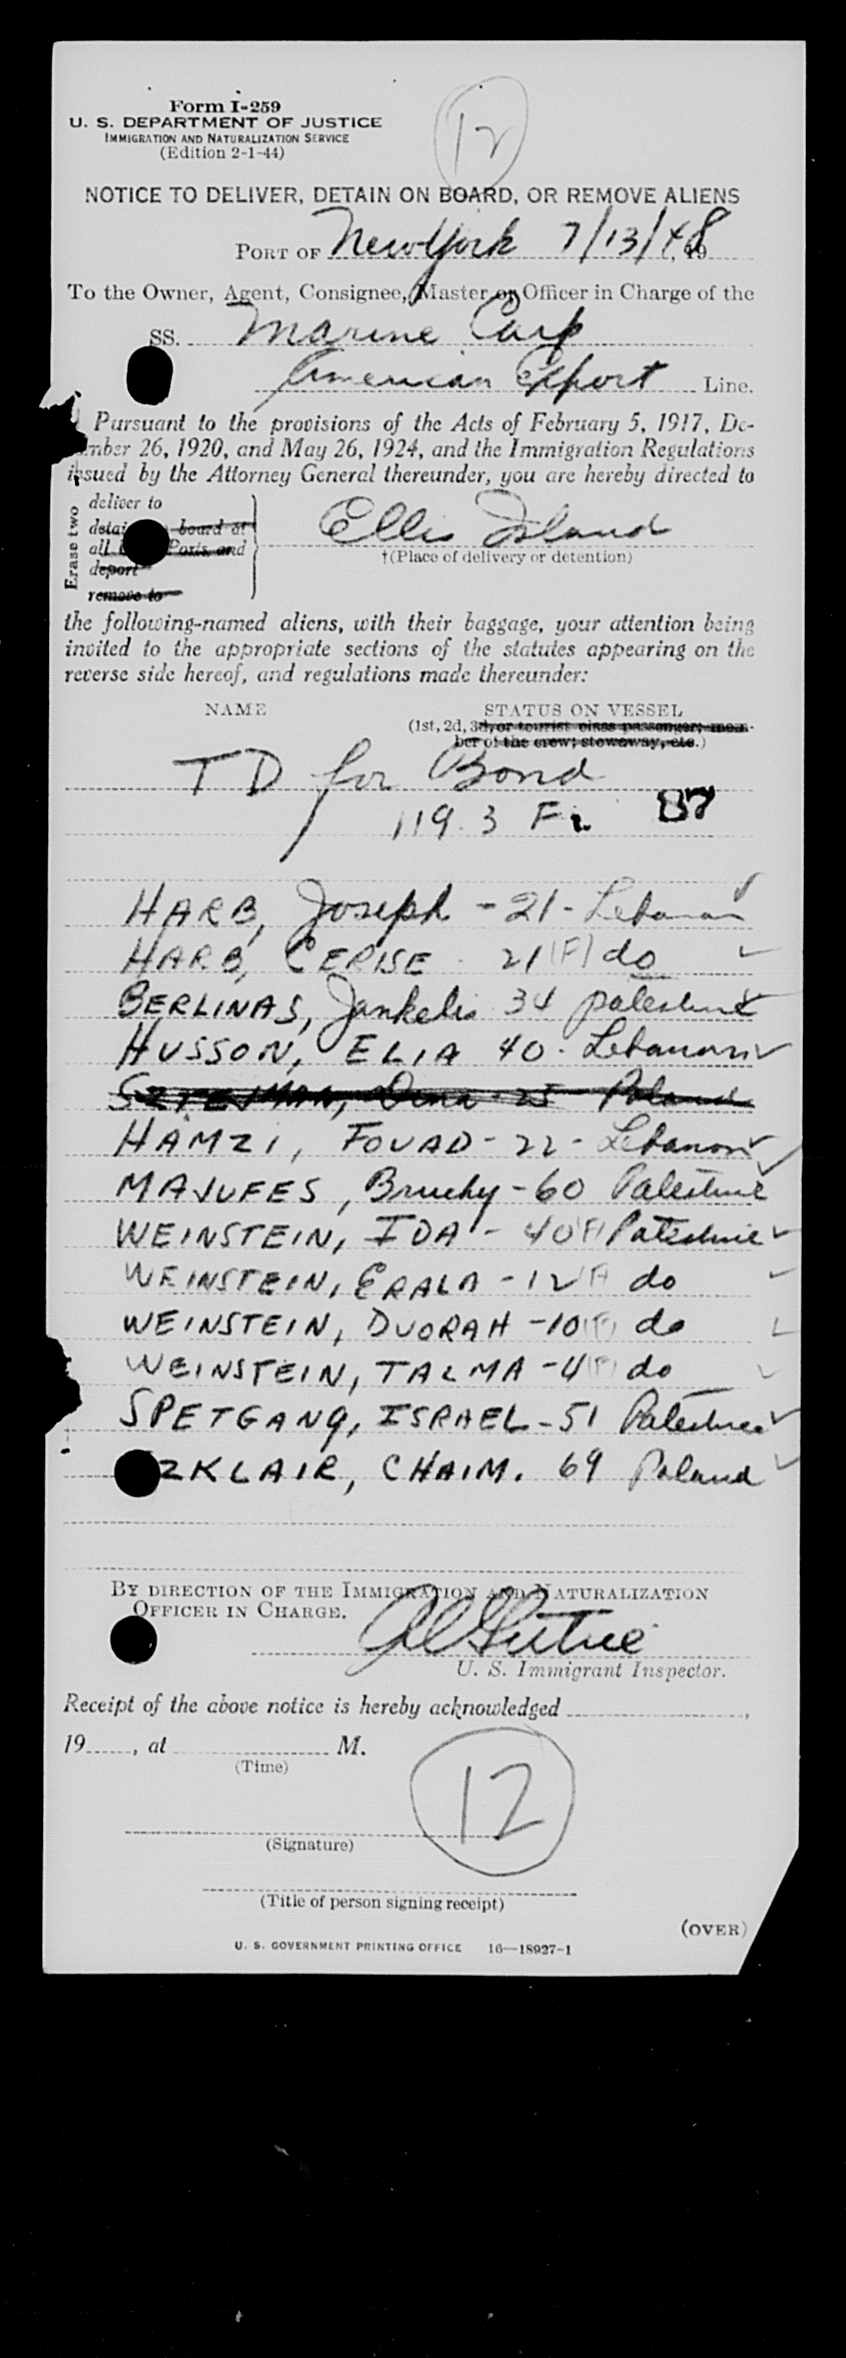 Form I-259
U. S. DEPARTMENT OF JUSTICE
IMMIGRATION AND NATURALIZATION SERVICE
(Edition 2-1-44)
12
NOTICE TO DELIVER, DETAIN ON BOARD, OR REMOVE ALIENS
PORT OF New York 7/13/48, 19
To the Owner, Agent, Consignee, Master or Officer in Charge of the
SS. Marine Carp
American Export Line.
Pursuant to the provisions of the Acts of February 5, 1917, De-
mber 26, 1920, and May 26, 1924, and the Immigration Regulations
issued by the Attorney General thereunder, you are hereby directed to
Erase two
deliver to
detai board at
all Ports and
deport
remove to
Ellis Island
†(Place of delivery or detention)
the following-named aliens, with their baggage, your attention being
invited to the appropriate sections of the statutes appearing on the
reverse side hereof, and regulations made thereunder:
NAME STATUS ON VESSEL
(1st, 2d, 3d, or tourist class passenger; mem-
ber of the crew; stowaway, etc.)
TD for Bond
119.3 Fi. 87
HARB, Joseph - 21 - Lebanon
HARB, CERISE 21 (F) do
BERLINAS, Jankelis 34 Palestine
HUSSON, ELIA 40 - Lebanon
Dina 25 Poland
HAMZI, FOUAD - 22 - Lebanon
MAJUFES, Bruchy - 60 Palestine
WEINSTEIN, IDA - 40 (F) Palestine
WEINSTEIN, ERALA - 12 (F) do
WEINSTEIN, DVORAH - 10 (F) do
WEINSTEIN, TALMA - 4 (F) do
SPETGANG, ISRAEL - 51 Palestine
ZKLAIR, CHAIM. 69 Poland
BY DIRECTION OF THE IMMIGRATION AND NATURALIZATION
OFFICER IN CHARGE.
U. S. Immigrant Inspector.
Receipt of the above notice is hereby acknowledged ,
19 , at M.
(Time)
12
(Signature)
(Title of person signing receipt)
(OVER)
U. S. GOVERNMENT PRINTING OFFICE 16—18927-1